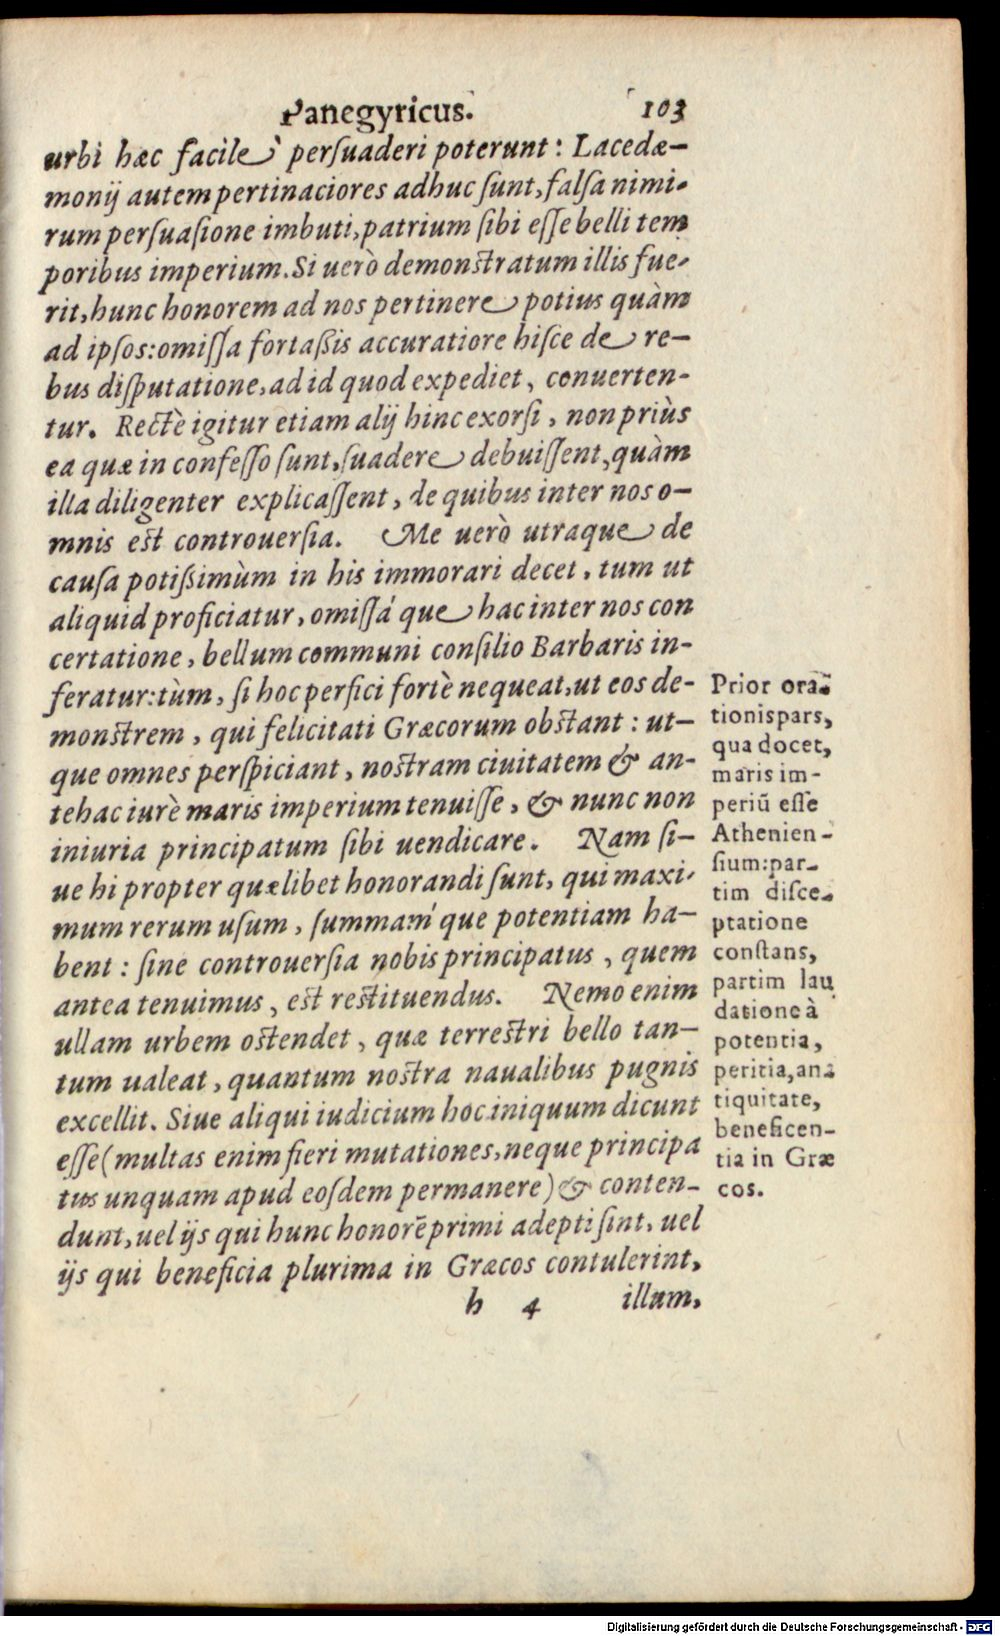 Panegyricus. 103
urbi hæc facilè persuaderi poterunt: Lacedæ-
monij autem pertinaciores adhuc sunt, falsa nimi-
rum persuasione imbuti, patrium sibi esse belli tem
poribus imperium. Si uerò demonstratum illis fue-
rit, hunc honorem ad nos pertinere potius quàm
ad ipsos: omissa fortaßis accuratiore hisce de re-
bus disputatione, ad id quod expediet, conuerten-
tur. Rectè igitur etiam alij hinc exorsi, non priùs
ea quæ in confesso sunt, suadere debuissent, quàm
illa diligenter explicassent, de quibus inter nos o-
mnis est controuersia. Me uerò utraque de
causa potißimùm in his immorari decet, tum ut
aliquid proficiatur, omissá que hac inter nos con
certatione, bellum communi consilio Barbaris in-
feratur: tùm, si hoc perfici fortè nequeat, ut eos de-
monstrem, qui felicitati Græcorum obstant: ut-
que omnes perspiciant, nostram ciuitatem & an-
tehac iurè maris imperium tenuisse, & nunc non
iniuria principatum sibi uendicare. Nam si-
ue hi propter quælibet honorandi sunt, qui maxi-
mum rerum usum, summaḿ que potentiam ha-
bent: sine controuersia nobis principatus, quem
antea tenuimus, est restituendus. Nemo enim
ullam urbem ostendet, quæ terrestri bello tan-
tum ualeat, quantum nostra naualibus pugnis
excellit. Siue aliqui iudicium hoc iniquum dicunt
esse (multas enim fieri mutationes, neque principa
tus unquam apud eosdem permanere) & conten-
dunt, uel ijs qui hunc honorē primi adepti sint, uel
ijs qui beneficia plurima in Græcos contulerint,
h 4 illum,
Prior ora-
tionis pars,
qua docet,
maris im-
periū esse
Athenien-
sium: par-
tim disce-
ptatione
constans,
partim lau
datione à
potentia,
peritia, an-
tiquitate,
beneficen-
tia in Græ
cos.
Digitalisierung gefördert durch die Deutsche Forschungsgemeinschaft - DFG